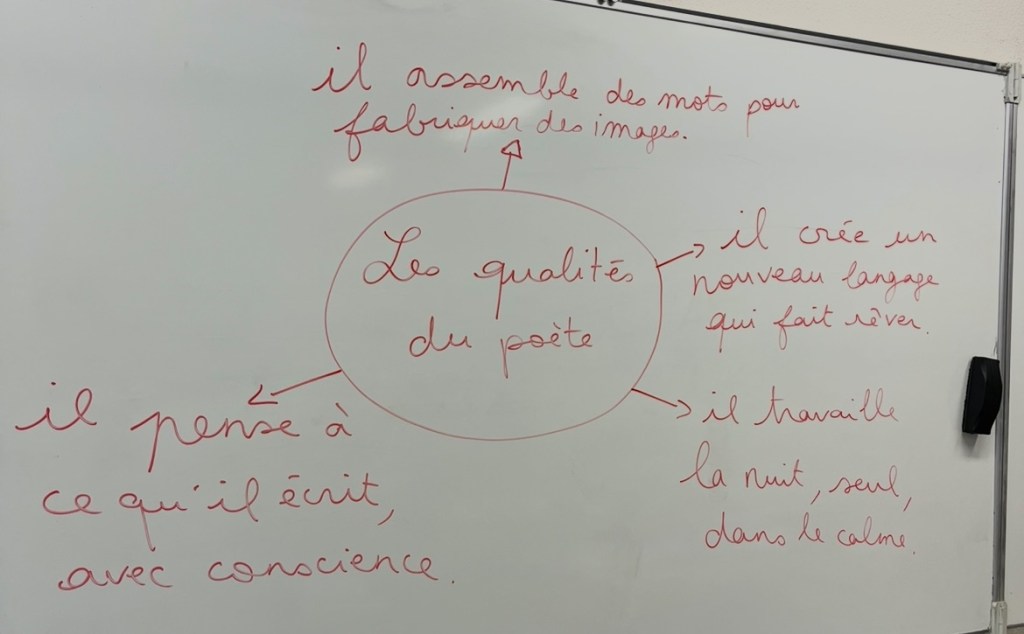 il assemble des mots pour
fabriquer des images.
Les qualités
du poète
il crée un
nouveau langage
qui fait rêver.
il travaille
la nuit, seul,
dans le calme.
il pense à
ce qu'il écrit,
avec conscience.